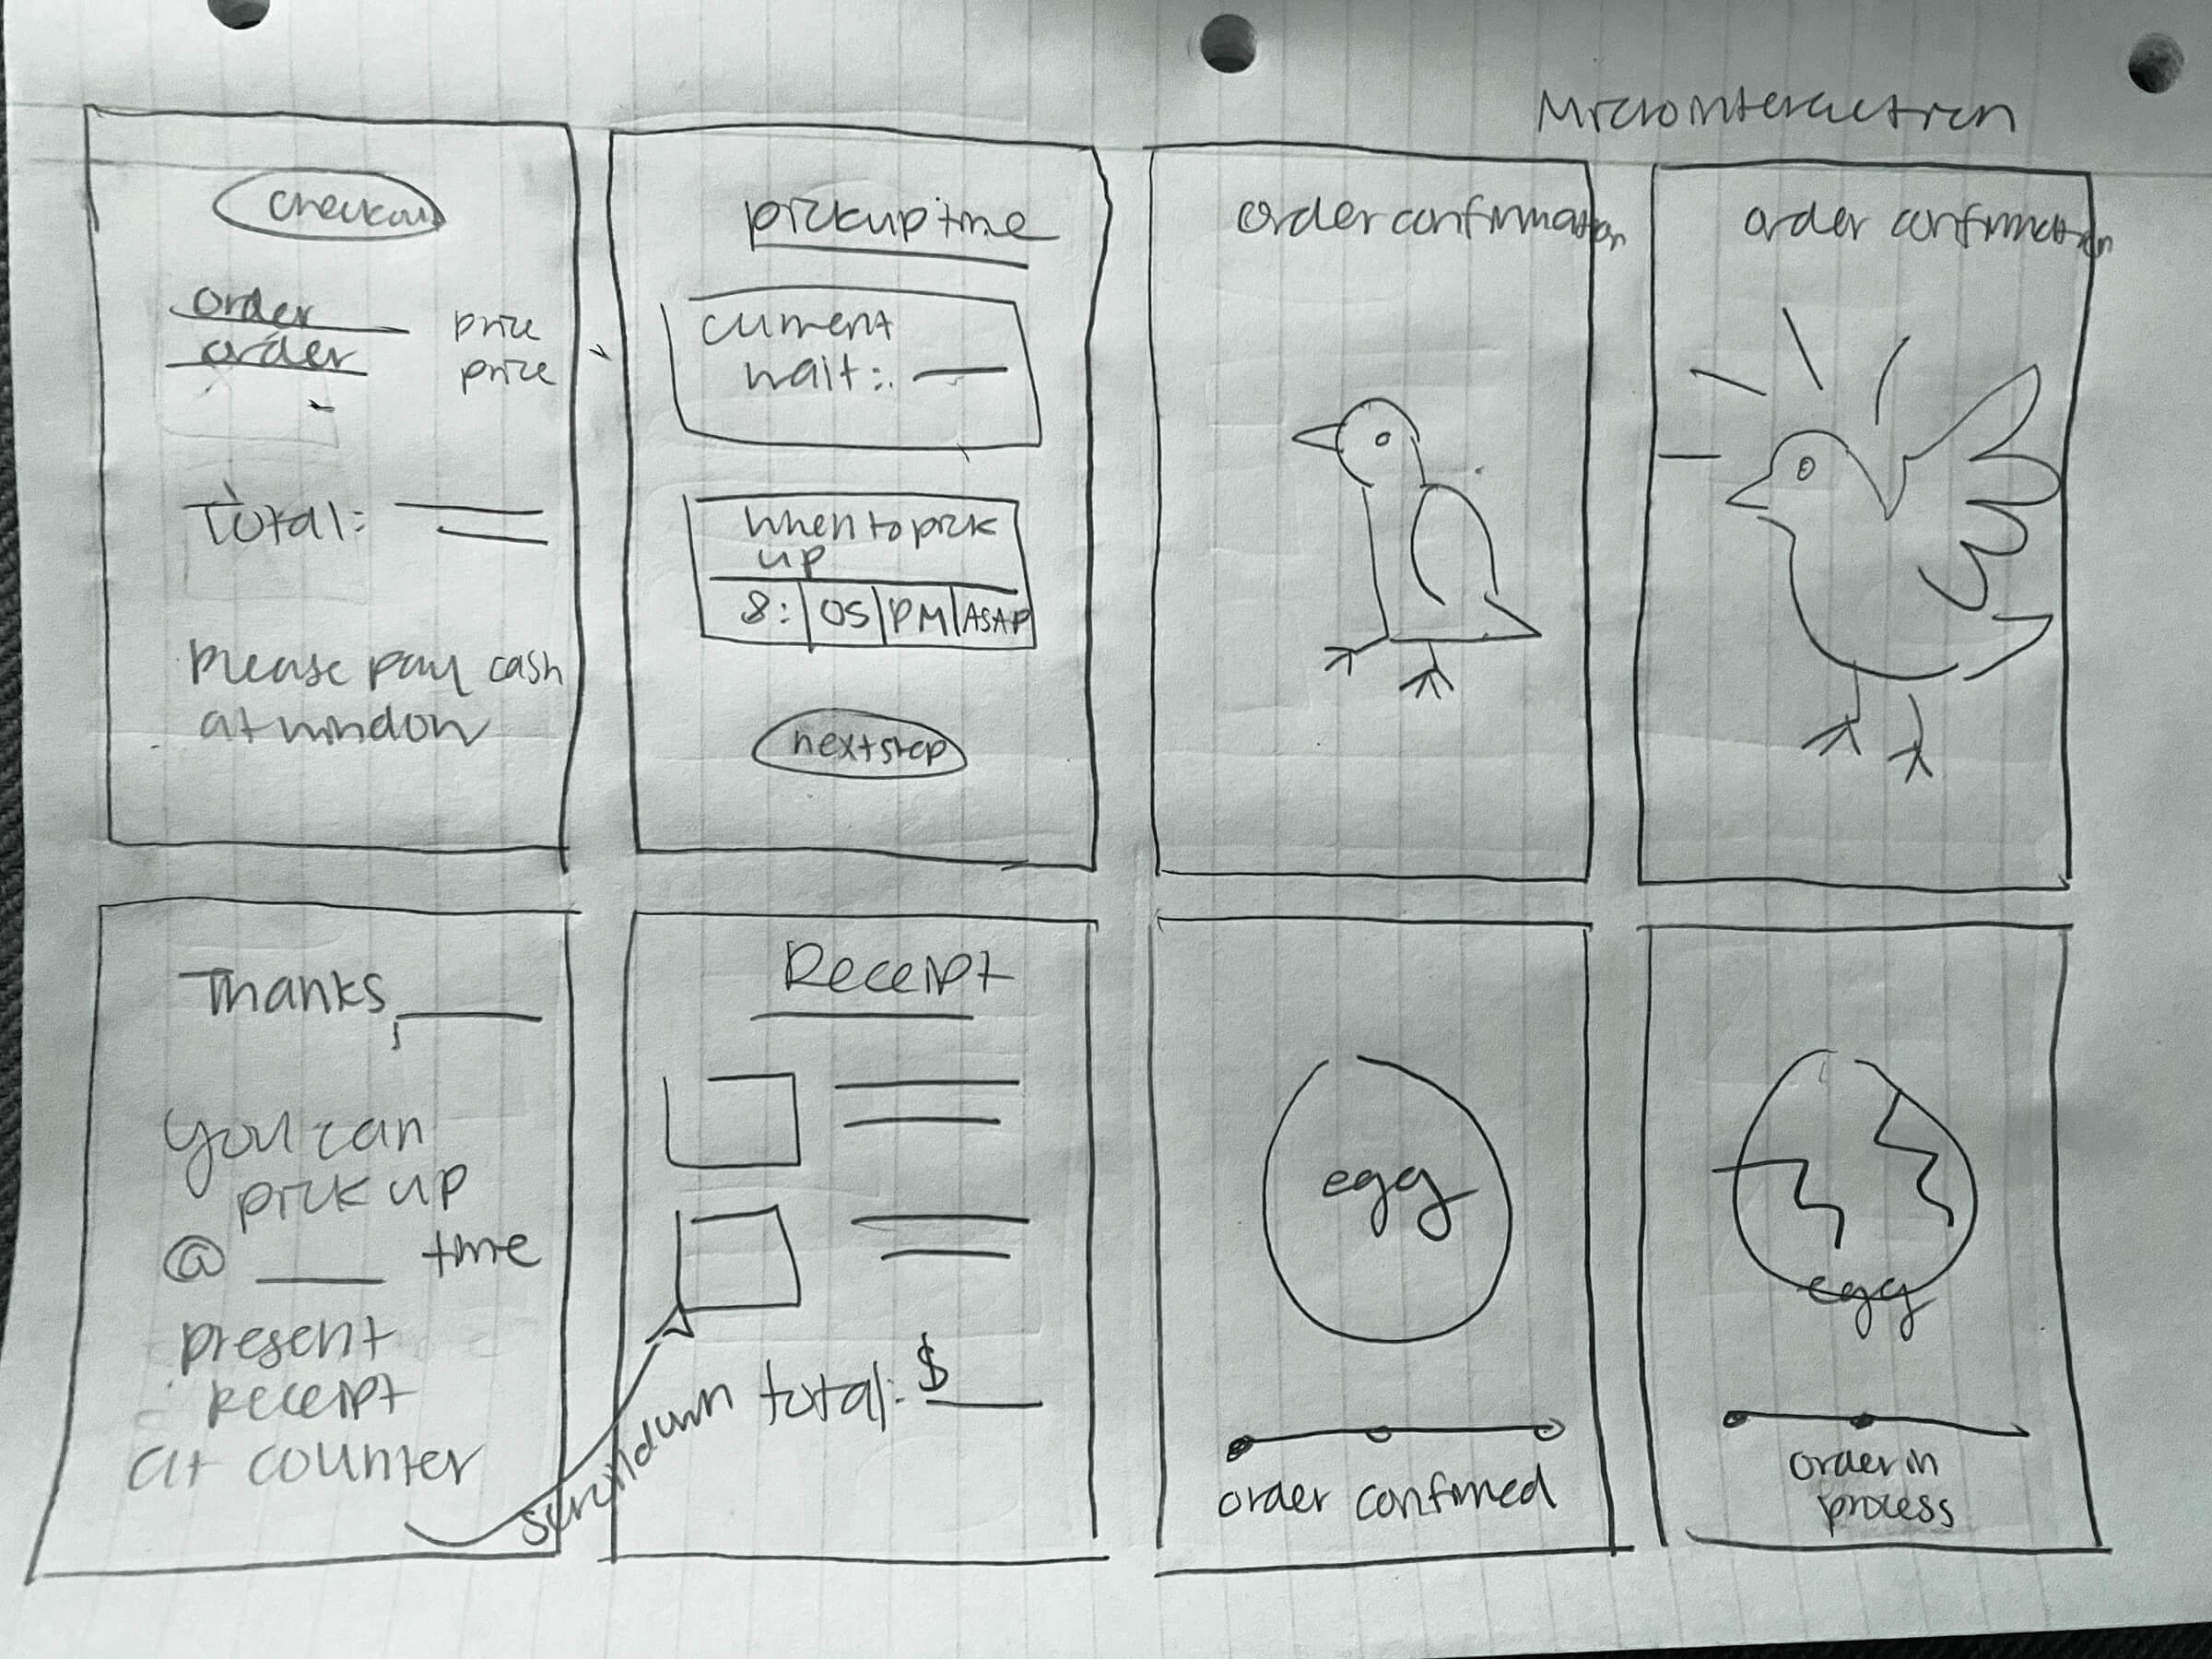 Microinteraction
checkout
order price
order price
Total:
please pay cash
at window
pickup time
current
wait:
when to pick
up
8: 05 PM ASAP
next step
order confirmation
order confirmation
Thanks,
you can
pick up
@ time
present
receipt
at counter
scroll down
Receipt
total: $
egg
order confirmed
egg
order in
process